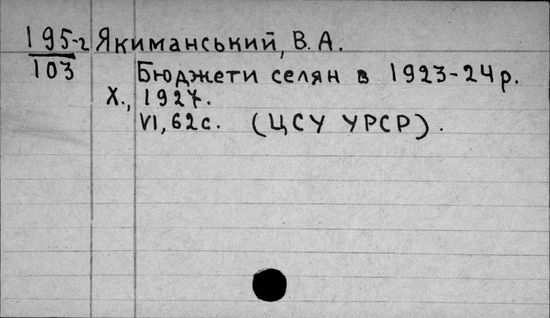 195-г Якиманський, В. А.
103
Бюджети селян в 1923-24 р.
Х., 1927.
VI, 62 с. (ЦСУ УРСР).